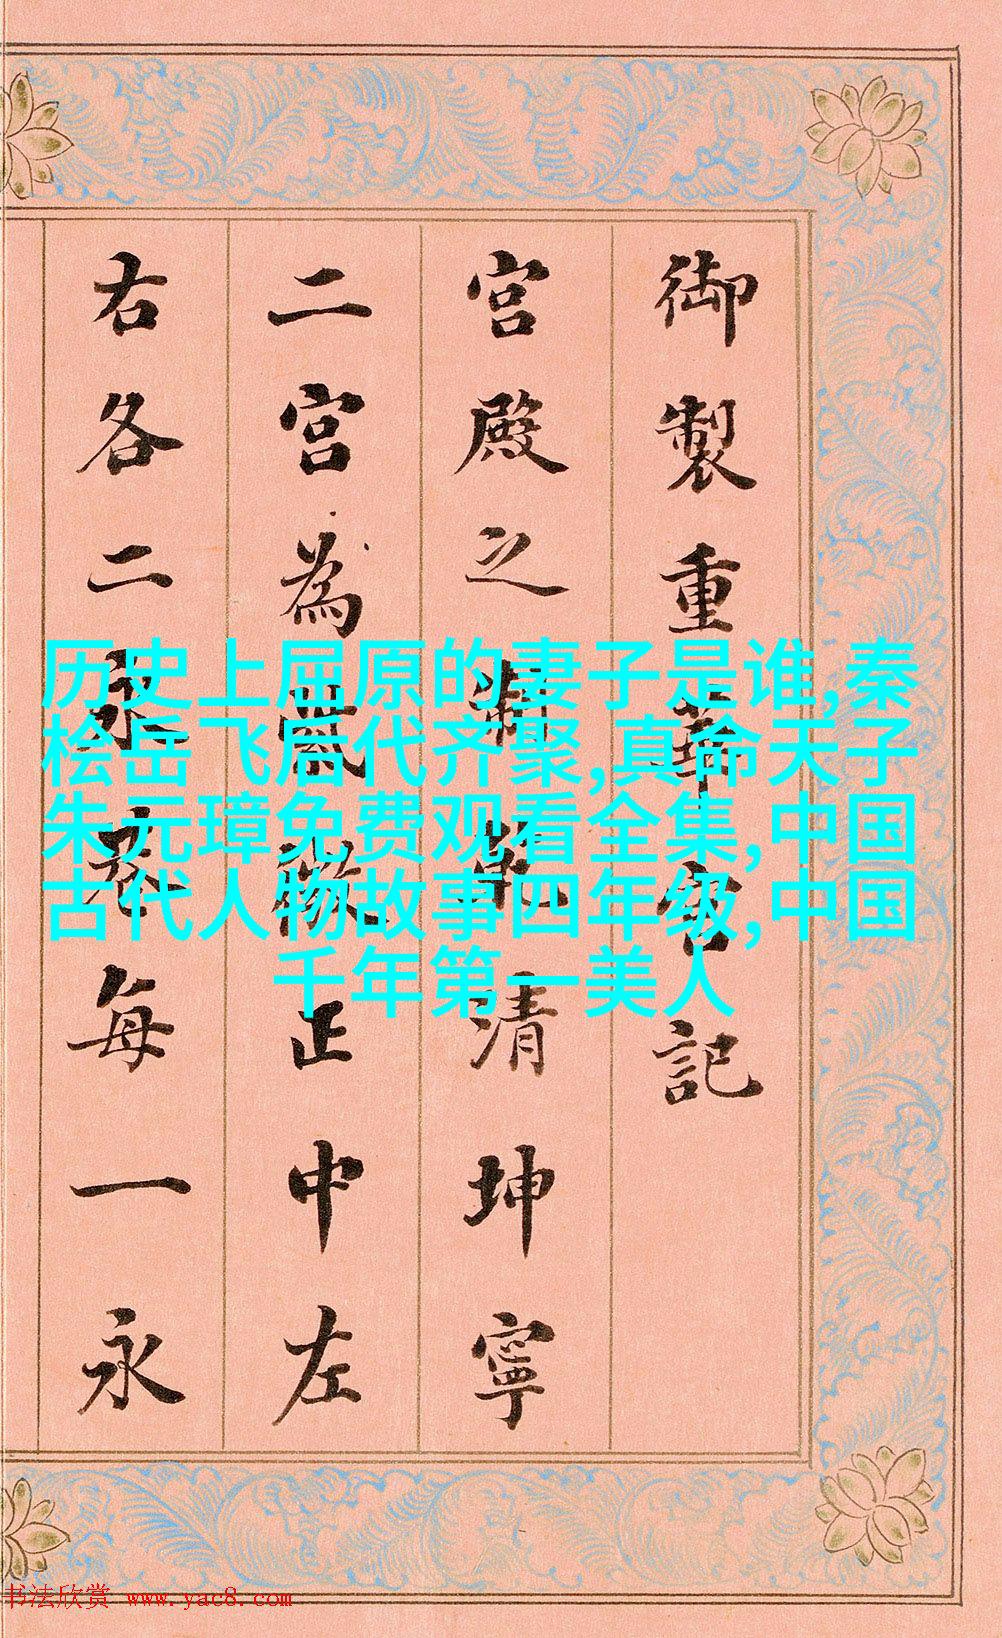 御製重華宮記
宮殿之制乾清坤寧
二宮為正中左
右各二永巷每一永
历史上屈原的妻子是谁,秦
桧岳飞后代齐聚,真命天子
朱元璋免费观看全集,中国
古代人物故事四年级,中国
千年第一美人
书法欣赏 www.yac8.com